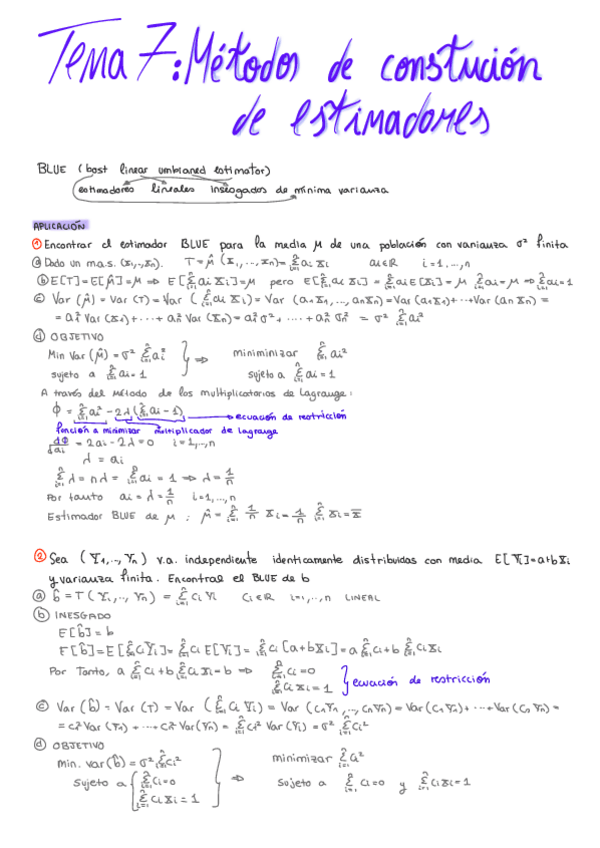 Tema 7: Métodos de constución
de estimadores
BLUE (bost linear umbianed estimator)
estimadores lineales insesgados de mínima varianza
APLICACIÓN
① Encontrar el estimador BLUE para la media μ de una población con varianza σ² finita
ⓐ Dado un m.a.s. (X₁,..,Xₙ). T=μ̂(X₁,..,Xₙ)=Σⁿᵢ₌₁ aᵢ Xᵢ aᵢ∈ℝ i=1,...,n
ⓑ E[T]=E[μ̂]=μ ⇒ E[Σⁿᵢ₌₁ aᵢXᵢ]=μ pero E[Σⁿᵢ₌₁ aᵢXᵢ] = Σⁿᵢ₌₁ aᵢE[Xᵢ] = μ Σⁿᵢ₌₁ aᵢ=μ ⇒ Σⁿᵢ₌₁ aᵢ=1
ⓒ Var (μ̂) = Var (T) = Var (Σⁿᵢ₌₁ aᵢ Xᵢ) = Var (a₁X₁,...,aₙXₙ) = Var (a₁X₁)+···+Var (aₙ Xₙ) =
= a₁² Var (X₁)+···+ aₙ² Var (Xₙ) = a₁² σ² +····+ aₙ² σₙ² = σ² Σⁿᵢ₌₁ aᵢ²
ⓓ OBJETIVO
Min Var (μ̂) = σ² Σⁿᵢ₌₁ aᵢ² ⇒ minimizar Σⁿᵢ₌₁ aᵢ²
sujeto a Σⁿᵢ₌₁ aᵢ = 1 sujeto a Σⁿᵢ₌₁ aᵢ = 1
A través del Método de los multiplicatorios de Lagrange:
Φ = Σⁿᵢ₌₁ aᵢ² - 2λ(Σⁿᵢ₌₁ aᵢ - 1) → ecuación de restricción
función a minimizar multiplicador de Lagrange
dΦ/daᵢ = 2aᵢ - 2λ = 0 i=1,..,n
λ = aᵢ
Σⁿᵢ₌₁ λ = nλ = Σⁿᵢ₌₁ aᵢ = 1 ⇒ λ = 1/n
Por tanto aᵢ = λ = 1/n i=1,...,n
Estimador BLUE de μ: μ̂ = Σⁿᵢ₌₁ 1/n Xᵢ = 1/n Σⁿᵢ₌₁ Xᵢ = X̄
② Sea (Y₁,..,Yₙ) v.a. independiente identicamente distribuidas con media E[Yᵢ]=a+bXᵢ
y varianza finita. Encontral el BLUE de b
ⓐ b̂ = T(Y₁,..,Yₙ) = Σⁿᵢ₌₁ cᵢ Yᵢ Cᵢ∈ℝ i=1,..,n LINEAL
ⓑ INESGADO
E[b̂] = b
E[b̂] = E[Σⁿᵢ₌₁ cᵢYᵢ] = Σⁿᵢ₌₁ cᵢ E[Yᵢ] = Σⁿᵢ₌₁ cᵢ [a+bXᵢ] = a Σⁿᵢ₌₁ cᵢ + b Σⁿᵢ₌₁ cᵢXᵢ
Por Tanto, a Σⁿᵢ₌₁ cᵢ + b Σⁿᵢ₌₁ cᵢXᵢ = b ⇒ Σⁿᵢ₌₁ cᵢ = 0
Σⁿᵢ₌₁ cᵢXᵢ = 1 ecuación de restricción
ⓒ Var (b̂) = Var (T) = Var (Σⁿᵢ₌₁ cᵢ Yᵢ) = Var (c₁Y₁,..,cₙYₙ) = Var (c₁Y₁)+···+Var (cₙ Yₙ) =
= c₁² Var (Y₁)+···+cₙ² Var (Yₙ) = Σⁿᵢ₌₁ cᵢ² Var (Yᵢ) = σ² Σⁿᵢ₌₁ cᵢ²
ⓓ OBJETIVO
min. var(b̂) = σ² Σⁿᵢ₌₁ cᵢ² ⇒ minimizar Σⁿᵢ₌₁ cᵢ²
Sujeto a Σⁿᵢ₌₁ cᵢ = 0 Sujeto a Σⁿᵢ₌₁ cᵢ = 0 y Σⁿᵢ₌₁ cᵢXᵢ = 1
Σⁿᵢ₌₁ cᵢXᵢ = 1